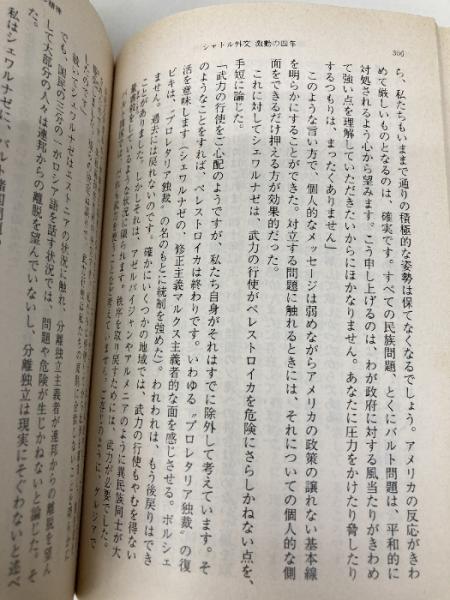 シャトル外交 激動の四年
306
ち、私たちもいままで通りの積極的な姿勢は保てなくなるでしょう。アメリカの反応がきわ
めて厳しいものとなるのは、確実です。すべての民族問題、とくにバルト問題は、平和的に
対処されるよう心から望みます。こう申し上げるのは、わが政府に対する風当たりがきわめ
て強い点を理解していただきたいからにほかなりません。あなたに圧力をかけたり脅したり
するつもりは、まったくありません」
このような言い方で、個人的なメッセージは弱めながらアメリカの政策の譲れない基本線
を明らかにすることができた。対立する問題に触れるときには、それについての個人的な側
面をできるだけ押える方が効果的だった。
これに対してシェワルナゼは、武力の行使がペレストロイカを危険にさらしかねない点を、
手短に論じた。
「武力の行使をご心配のようですが、私たち自身がそれはすでに除外して考えています。そ
のようなことをすれば、ペレストロイカは終わりです。いわゆる〝プロレタリア独裁〟の復
活を意味します（シェワルナゼの、修正主義マルクス主義者的な面を感じさせる。ボルシェ
ビキは、〝プロレタリア独裁〟の名のもとに統制を強めた）。われわれは、もう後戻りはでき
ません。過去には戻れないのです。確かにいくつかの地域では、武力の行使もやむを得ない
ことがありました。しかしそれは、アゼルバイジャンやアルメニアのように異民族同士が大
状況に限られます。秩序を取り戻すためには、武力が必要でした。
グルジアで
シェワルナゼはエストニアの状況に触れ、分離独立主義者が連邦からの離脱を望ん
でも、国民の三分の一がロシア語を話す状況では、問題や危険が生じかねないと論じた。そ
して大部分の人々は連邦からの離脱を望んでいないし、分離独立は現実にそぐわないと述べ
私はシェワルナゼに、バルト諸国問題